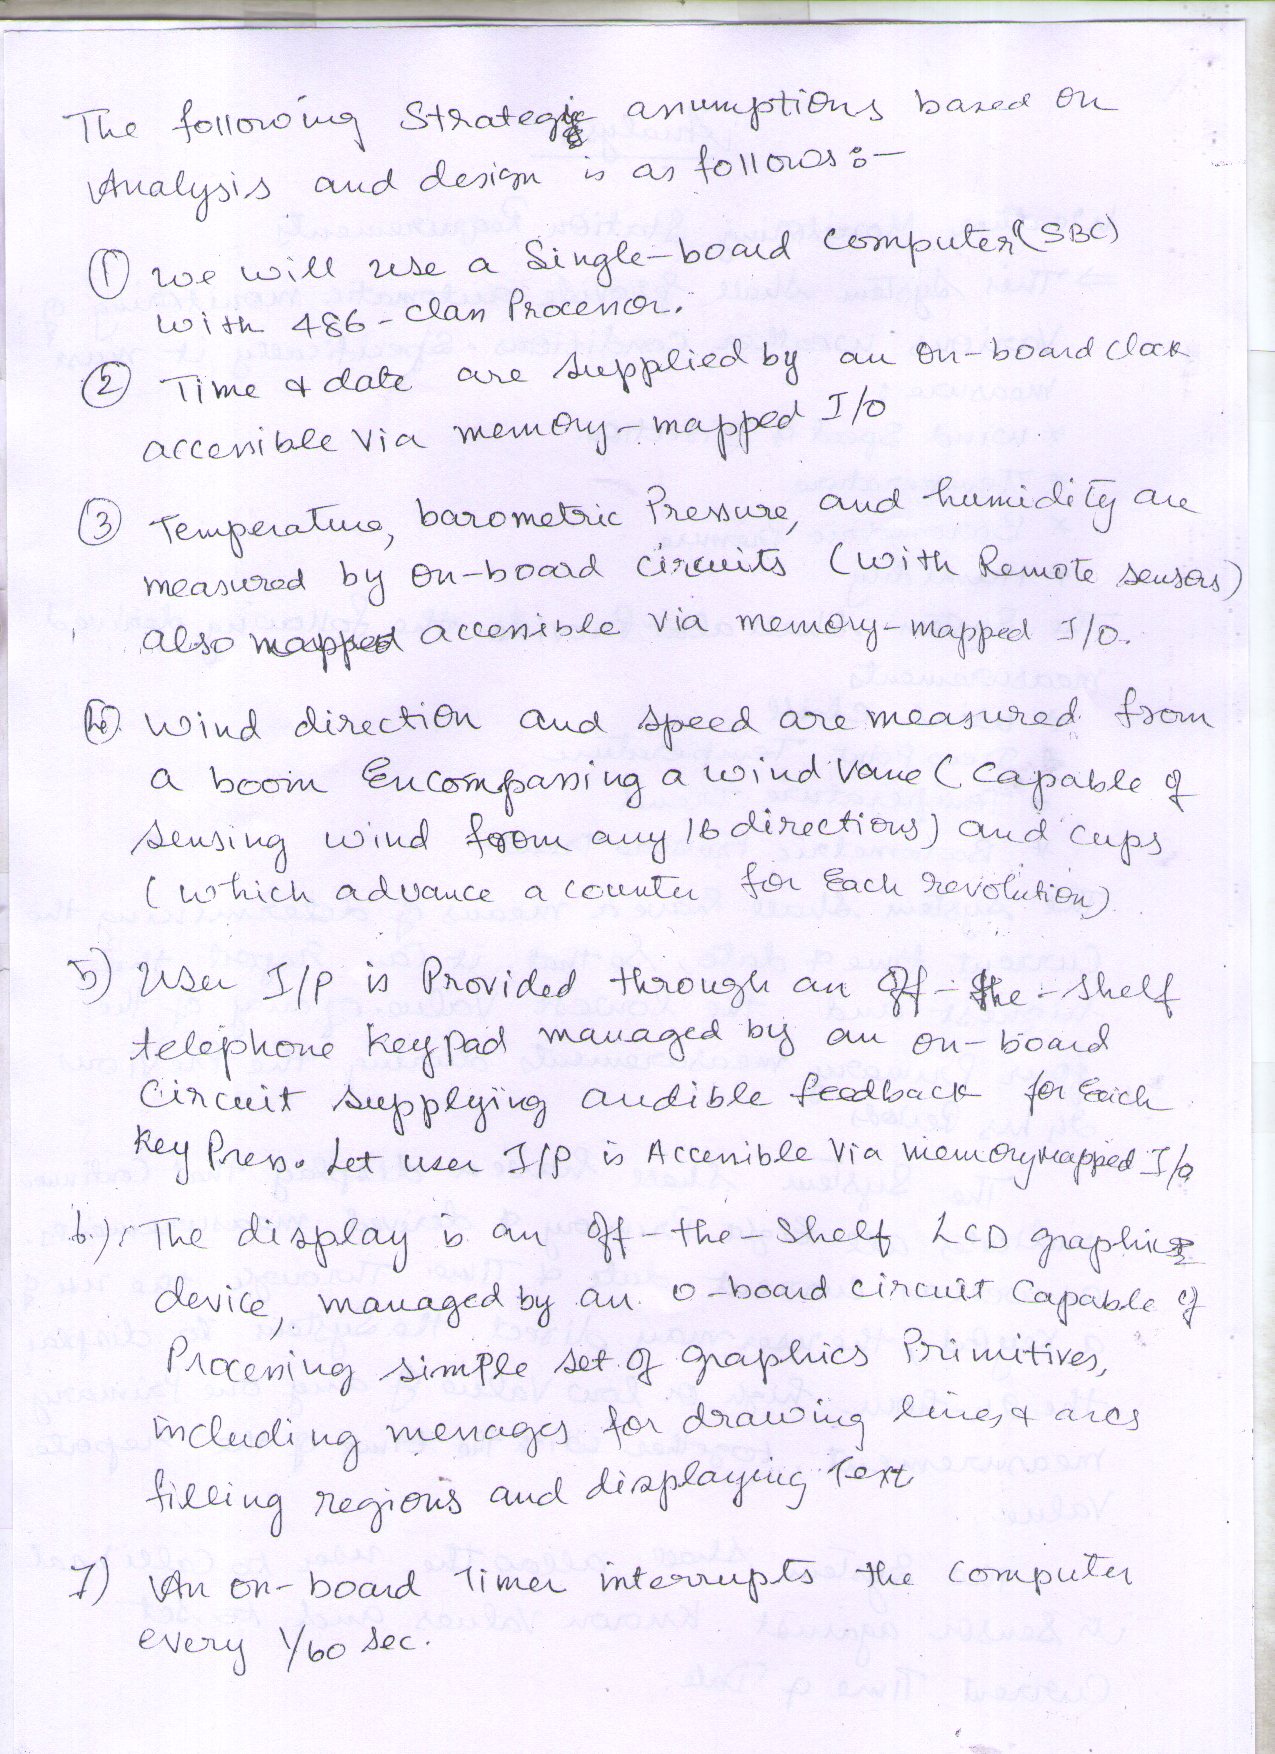 The following Strategic assumptions based on
Analysis and design is as follows:-
① we will use a Single-board computer (SBC)
with 486-class Processor.
② Time & date are supplied by an on-board clock
accessible via memory-mapped I/O
③ Temperature, barometric Pressure, and humidity are
measured by on-board circuits (with Remote sensors)
also mapped accessible via memory-mapped I/O.
④ Wind direction and speed are measured from
a boom Encompassing a wind vane (capable of
sensing wind from any 16 directions) and cups
(which advance a counter for Each revolution)
5) User I/P is Provided through an off-the-shelf
telephone keypad managed by an on-board
Circuit supplying audible feedback for Each
key Press. Let user I/P is Accessible via memory mapped I/O
6) The display is an off-the-shelf LCD graphics
device, managed by an o-board circuit Capable of
Processing simple set of graphics Primitives,
including messages for drawing lines & arcs
filling regions and displaying Text
7) An on-board Timer interrupts the computer
every 1/60 sec.